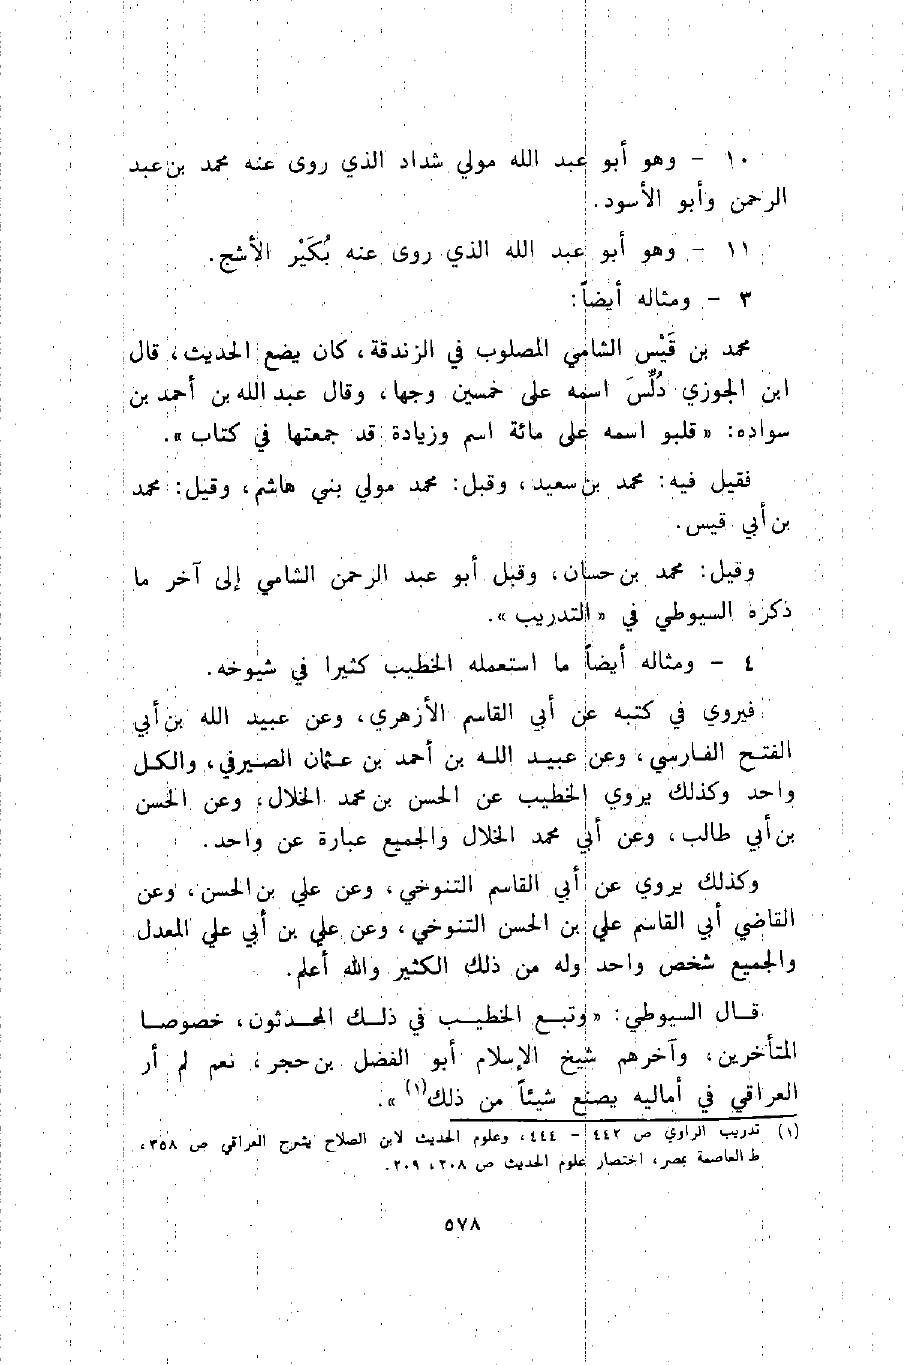 ١٠ - وهو أبو عبد الله مولي شداد الذي روى عنه محمد بن عبد
الرحمن وأبو الأسود.
١١ - وهو أبو عبد الله الذي روى عنه بُكَيْر الأشج.
٣ - ومثاله أيضاً:
محمد بن قَيْس الشامي المصلوب في الزندقة، كان يضع الحديث، قال
ابن الجوزي دُلِّسَ اسمه على خمسين وجها، وقال عبد الله بن أحمد بن
سواده: «قلبو اسمه على مائة اسم وزيادة قد جمعتها في كتاب».
فقيل فيه: محمد بن سعيد، وقبل: محمد مولي بني هاشم، وقيل: محمد
بن أبي قيس.
وقيل: محمد بن حسان، وقبل أبو عبد الرحمن الشامي إلى آخر ما
ذكره السيوطي في «التدريب».
٤ - ومثاله أيضاً ما استعمله الخطيب كثيرا في شيوخه.
فيروي في كتبه عن أبي القاسم الأزهري، وعن عبيد الله بن أبي
الفتح الفارسي، وعن عبيد الله بن أحمد بن عثمان الصيرفي، والكل
واحد وكذلك يروي الخطيب عن الحسن بن محمد الخلال، وعن الحسن
بن أبي طالب، وعن أبي محمد الخلال والجميع عبارة عن واحد.
وكذلك يروي عن أبي القاسم التنوخي، وعن علي بن الحسن، وعن
القاضي أبي القاسم علي بن الحسن التنوخي، وعن علي بن أبي علي المعدل
والجميع شخص واحد وله من ذلك الكثير والله أعلم.
قال السيوطي: «وتبع الخطيب في ذلك المحدثون، خصوصا
المتأخرين، وآخرهم شيخ الإسلام أبو الفضل بن حجر، نعم لم أر
العراقي في أماليه يصنع شيئاً من ذلك(١)».
(١) تدريب الراوي ص ٤٤٢ - ٤٤٤، وعلوم الحديث لابن الصلاح بشرح العراقي ص ٣٥٨،
ط العاصمة بمصر، اختصار علوم الحديث ص ٢٠٨، ٢٠٩.
٥٧٨